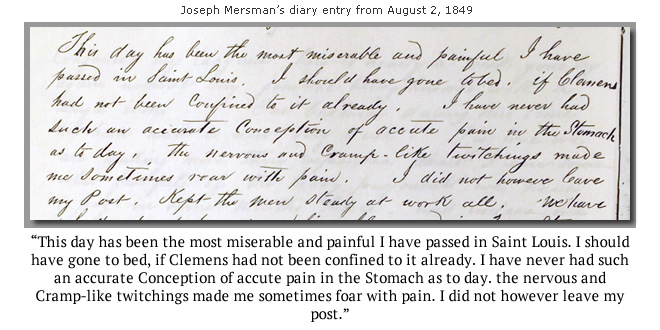 Joseph Mersman's diary entry from August 2, 1849
This day has been the most miserable and painful I have
passed in Saint Louis. I should have gone to bed. if Clemens
had not been Confined to it already. I have never had
Such an accurate Conception of accute pain in the Stomach
as to day, the nervous and Cramp-like twitchings made
me sometimes roar with pain. I did not howeve leave
my Post. Kept the men Steady at work all. We have
“This day has been the most miserable and painful I have passed in Saint Louis. I should
have gone to bed, if Clemens had not been confined to it already. I have never had such
an accurate Conception of accute pain in the Stomach as to day. the nervous and
Cramp-like twitchings made me sometimes foar with pain. I did not however leave my
post.”